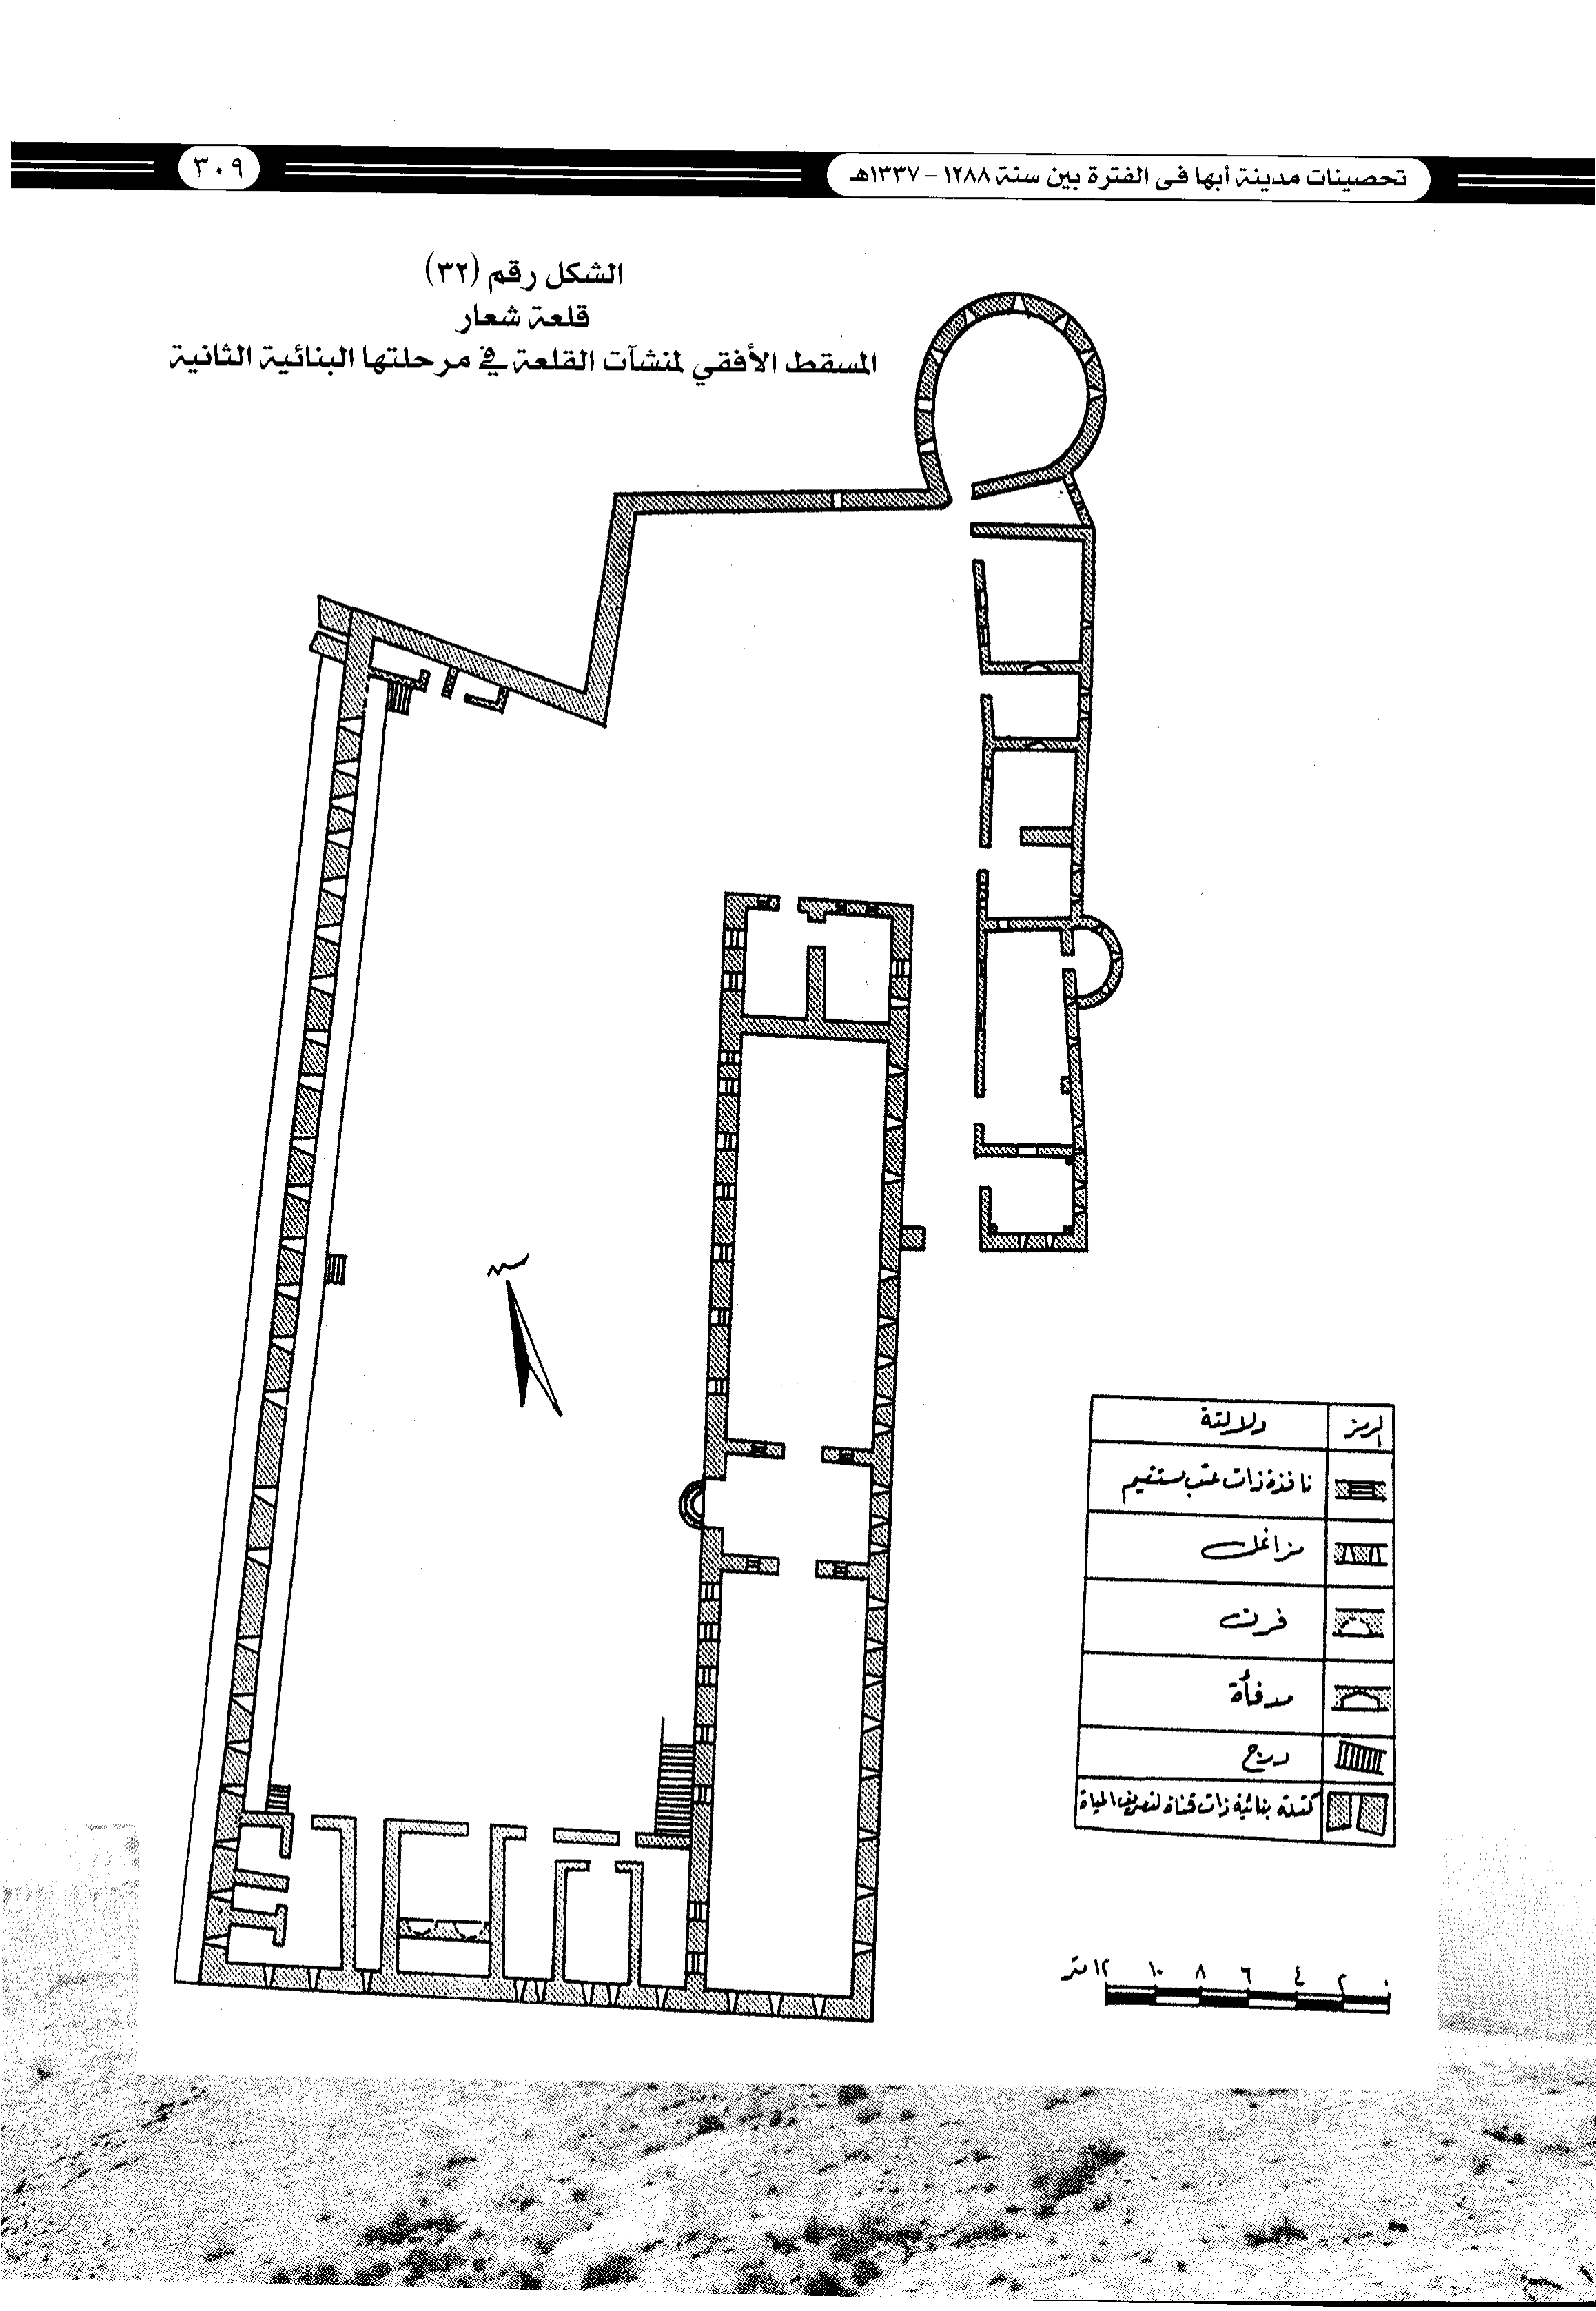 تحصينات مدينة أبها فى الفترة بين سنة ١٢٨٨ - ١٣٣٧هـ
٣٠٩
الشكل رقم (٣٢)
قلعة شعار
المسقط الأفقي لمنشآت القلعة في مرحلتها البنائية الثانية
الرمز دلالته
نافذة ذات عتب مستقيم
مزاغل
فرن
مدفأة
درج
كتلة بنائية ذات قناة لتصريف المياة
١٢ متر ١٠ ٨ ٦ ٤ ٢ ٠